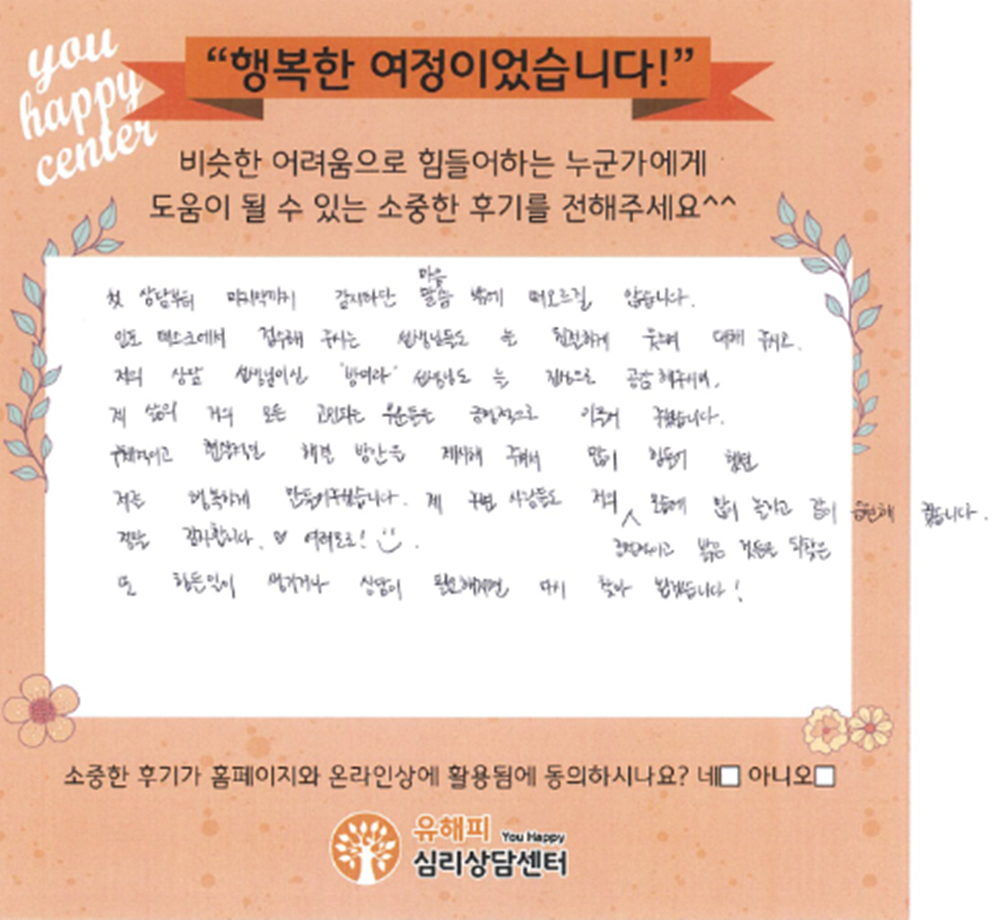 you
happy
center
“행복한 여정이었습니다!”
비슷한 어려움으로 힘들어하는 누군가에게
도움이 될 수 있는 소중한 후기를 전해주세요^^
마음
첫 상담부터 마지막까지 감사하단 말씀 밖에 떠오르질 않습니다.
인포 데스크에서 접수해 주시는 선생님들도 늘 친절하게 웃으며 대해 주시고.
저의 상담 선생님이신 선생님도 늘 진심으로 공감해주시며.
제 삶의 거의 모든 고민되는 부분들은 긍정적으로 이루어 졌습니다.
현실적인 해결 방안을 제시해 주셔서 많이 힘들어 했던
저를 행복하게 만들어주셨습니다. 제 주변 사람들도 저의 모습에 많이 놀라고 같이 응원해 줬습니다.
정말 감사합니다. ♡ 여러모로! 긍정적이고 밝은
또 힘든일이 생기거나 상담이 필요해지면 다시 찾아 뵙겠습니다!
소중한 후기가 홈페이지와 온라인상에 활용됨에 동의하시나요? 네□ 아니오□
유해피 You Happy
심리상담센터